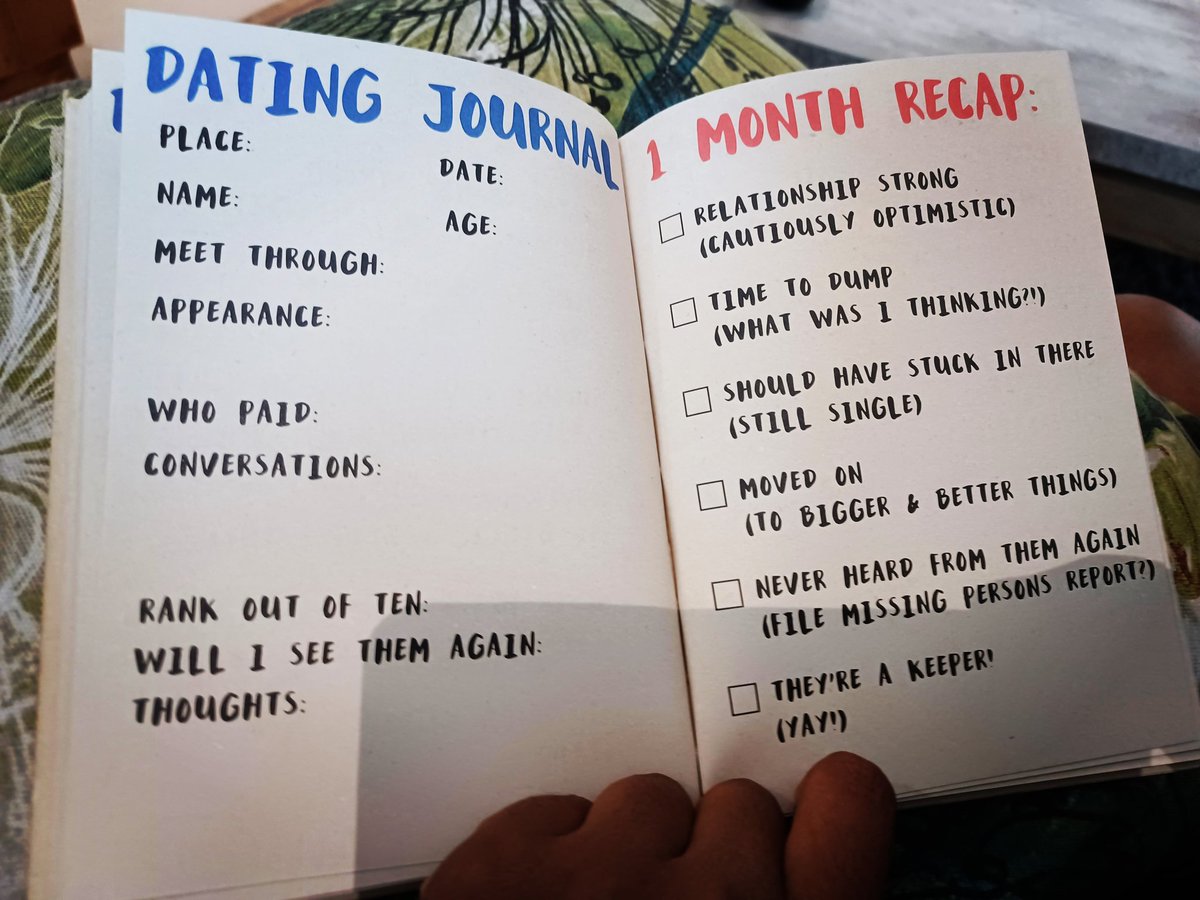 DATING JOURNAL
PLACE:
DATE:
NAME:
AGE:
MEET THROUGH:
APPEARANCE:
WHO PAID:
CONVERSATIONS:
RANK OUT OF TEN:
WILL I SEE THEM AGAIN:
THOUGHTS:
1 MONTH RECAP:
RELATIONSHIP STRONG
(CAUTIOUSLY OPTIMISTIC)
TIME TO DUMP
(WHAT WAS I THINKING?!)
SHOULD HAVE STUCK IN THERE
(STILL SINGLE)
MOVED ON
(TO BIGGER & BETTER THINGS)
NEVER HEARD FROM THEM AGAIN
(FILE MISSING PERSONS REPORT?)
THEY'RE A KEEPER!
(YAY!)